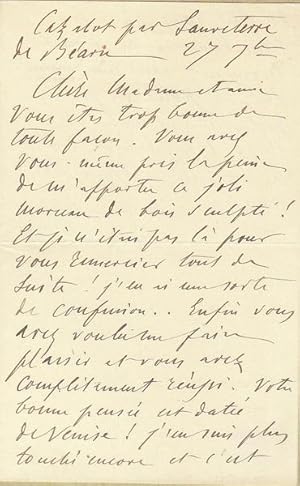 par Sauveterre
de Béarn 27 7bre
Chère Madame et amie
Vous êtes trop bonne de
toute façon. Vous avez
vous-même pris la peine
de m'apporter ce joli
morceau de bois sculpté !
Et je n'étais pas là pour
vous remercier tout de
suite ! j'en ai une sorte
de confusion.. Enfin vous
avez voulu me faire
plaisir et vous avez
complètement réussi. Votre
bonne pensée est datée
de Venise ! j'en suis plus
touché encore et c'est